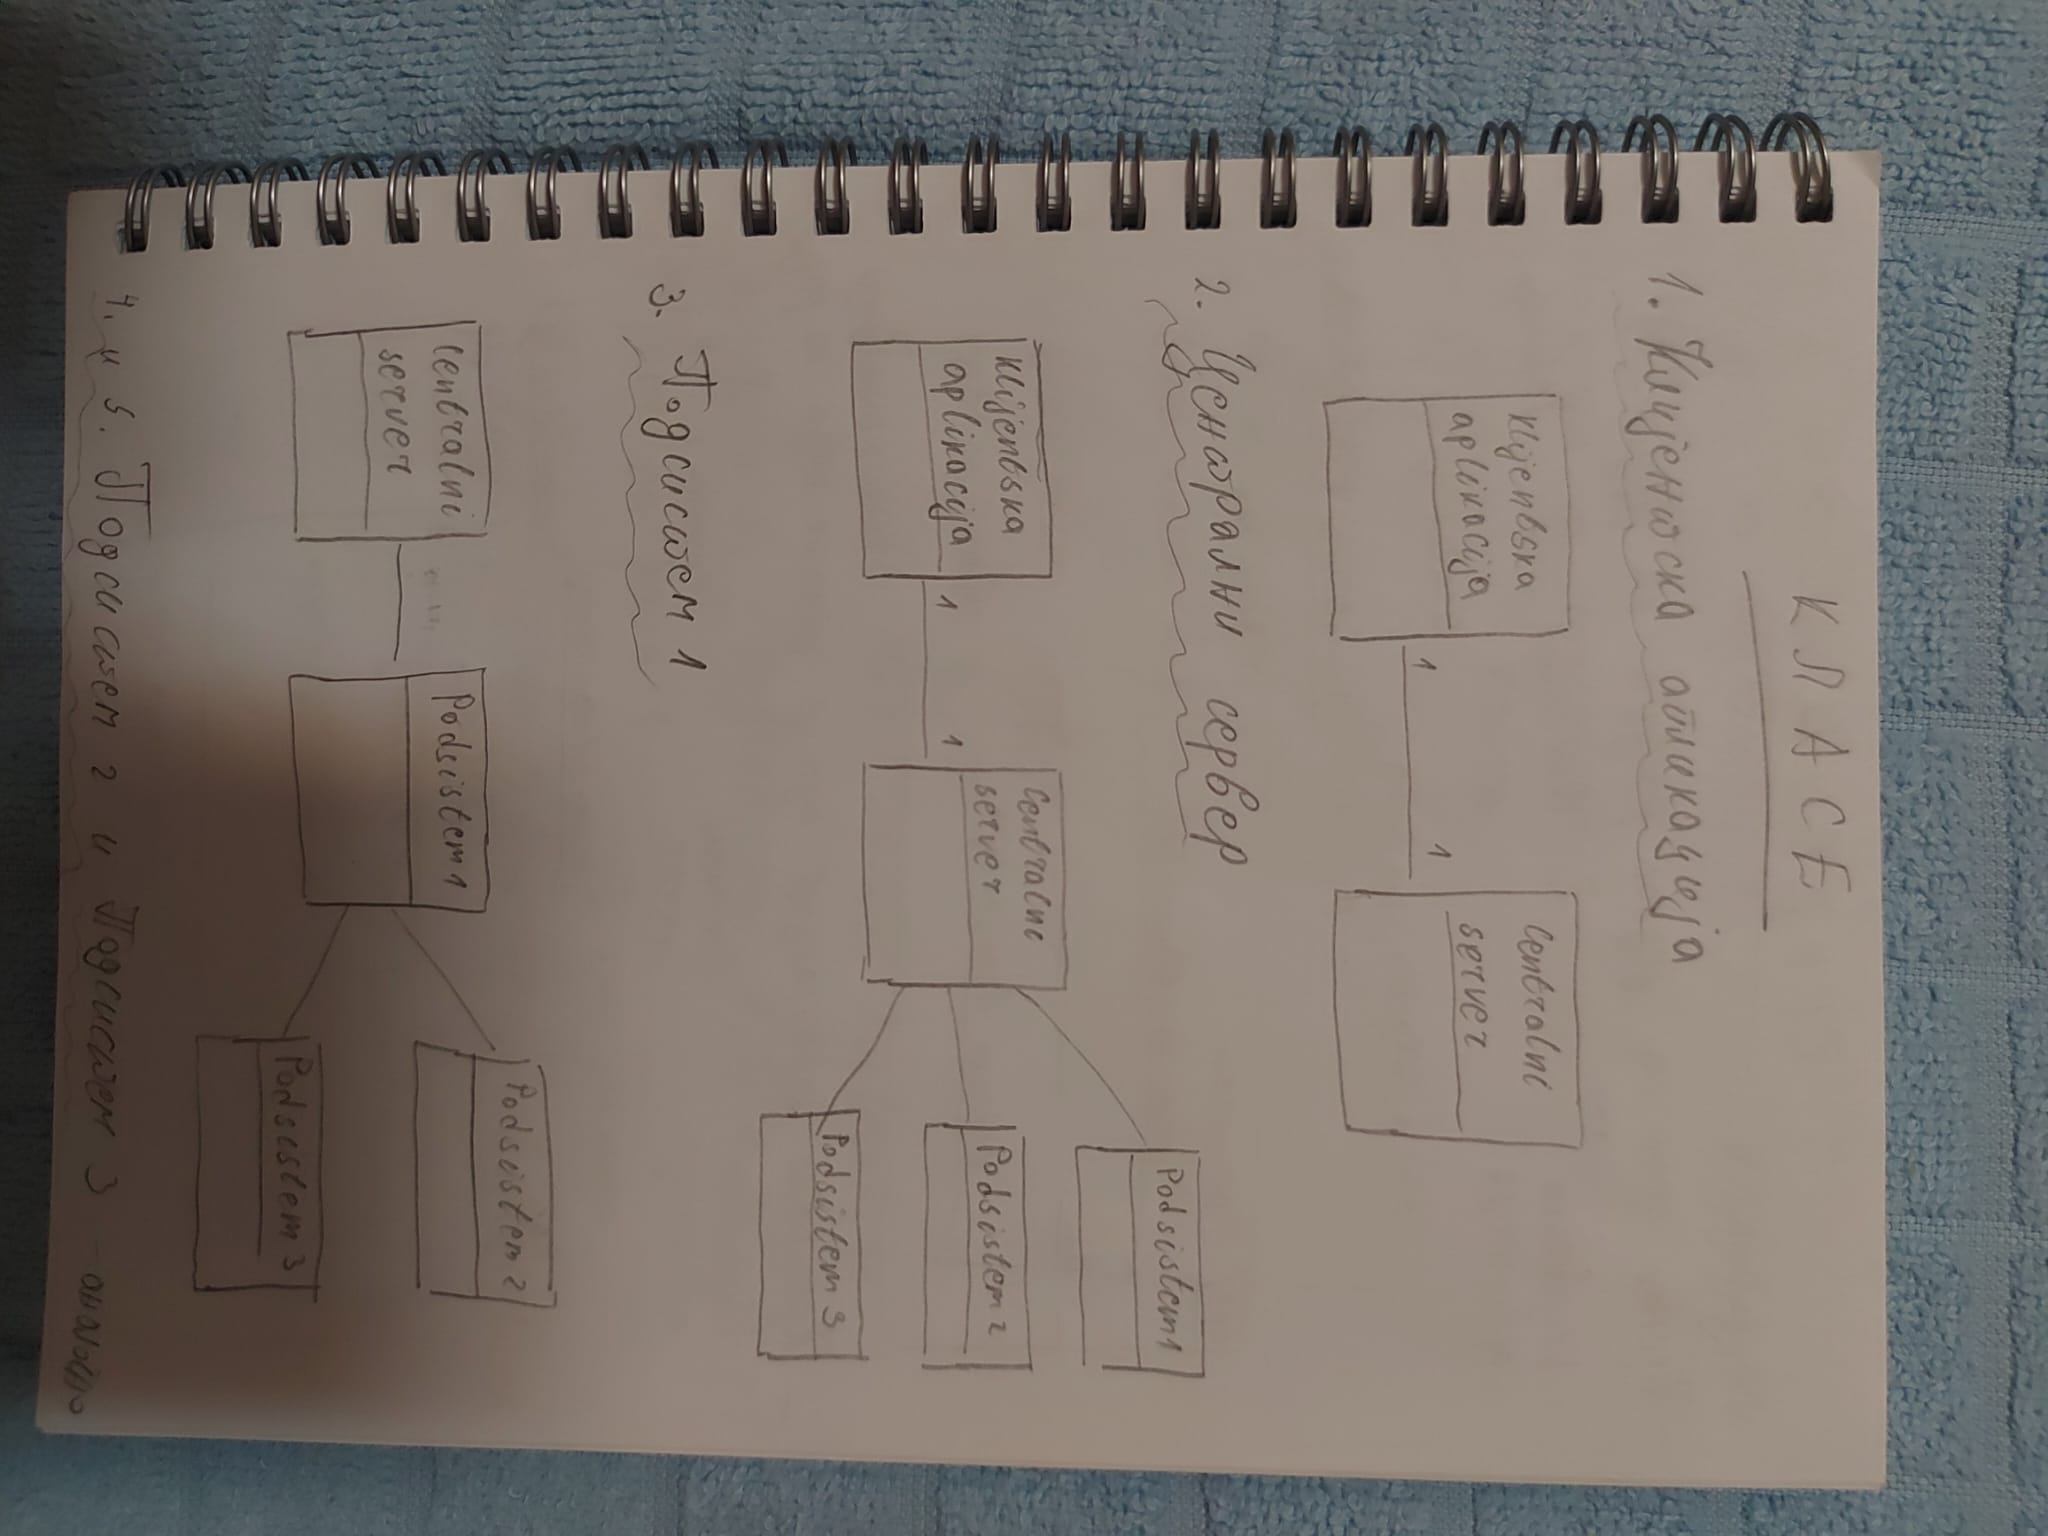 КЛАСЕ
1. Клијентска апликација
Klijentska
aplikacija
1
1
Centralni
server
2. Централни сервер
Klijentska
aplikacija
1
1
Centralni
server
Podsistem1
Podsistem2
Podsistem3
3. Подсистем 1
Centralni
server
Podsistem1
Podsistem2
Podsistem3
4. и 5. Подсистем 2 и Подсистем 3 -